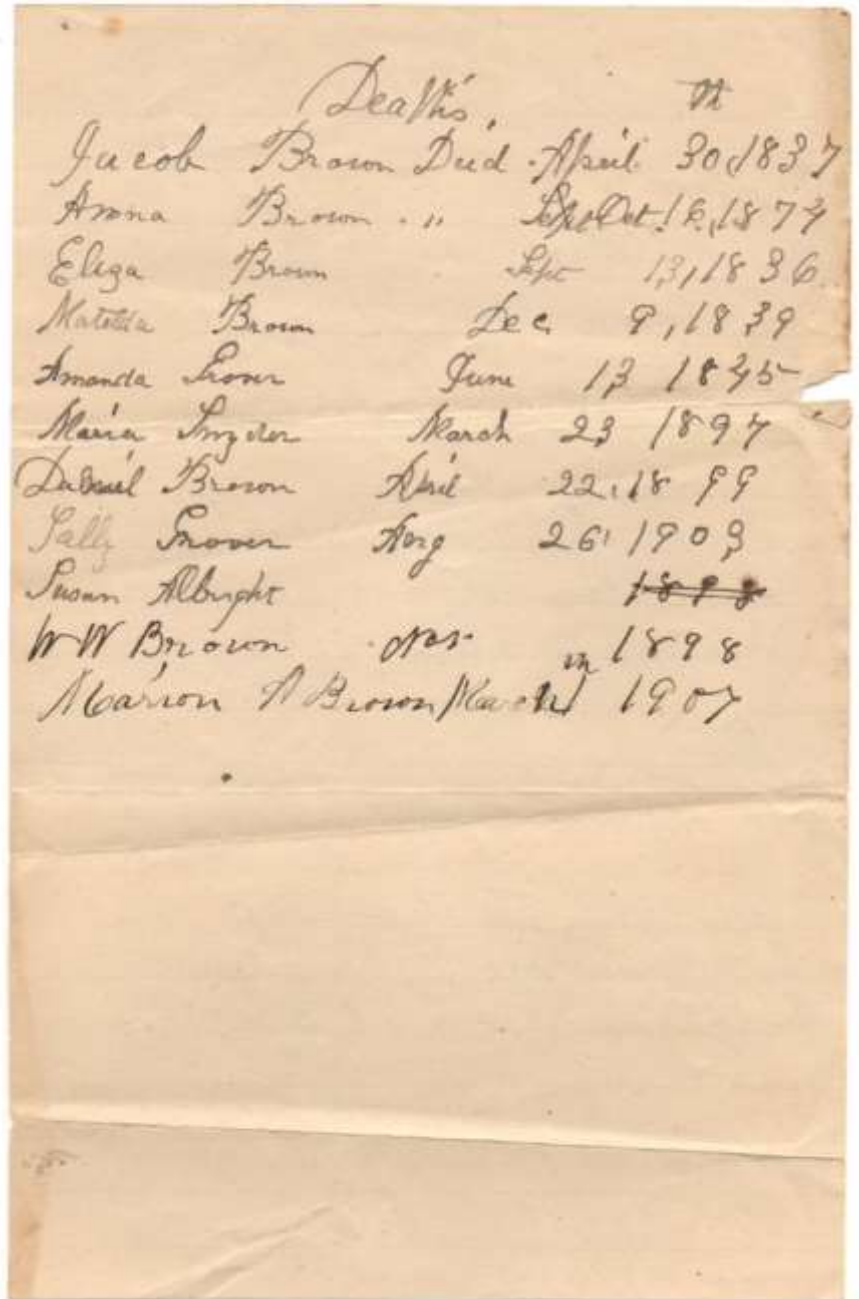 Deaths,
th
Jacob Brown Died April 30, 1837
Anna Brown " Sept Oct 16, 1874
Eliza Brown Sept 13, 1836
Matilda Brown Dec 9, 1839
Amanda Grover June 13 1845
Maria Snyder March 23 1897
Brown April 22, 1899
Sally Grover Aug 26, 1903
Susan Albright 1898
W W Brown Nov in 1898
Marion A Brown March 1907